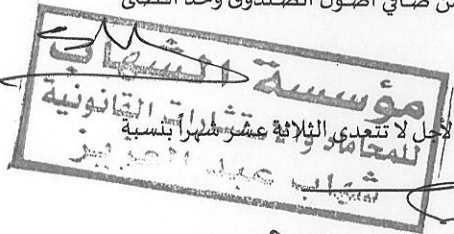 من صافي أصول الصندوق وحد أقصى
مؤسسة الشهاب
للمحاماة والاستشارات القانونية
لأجل لا تتعدى الثلاثة عشر شهراً بنسبة
شهاب عبد العزيز